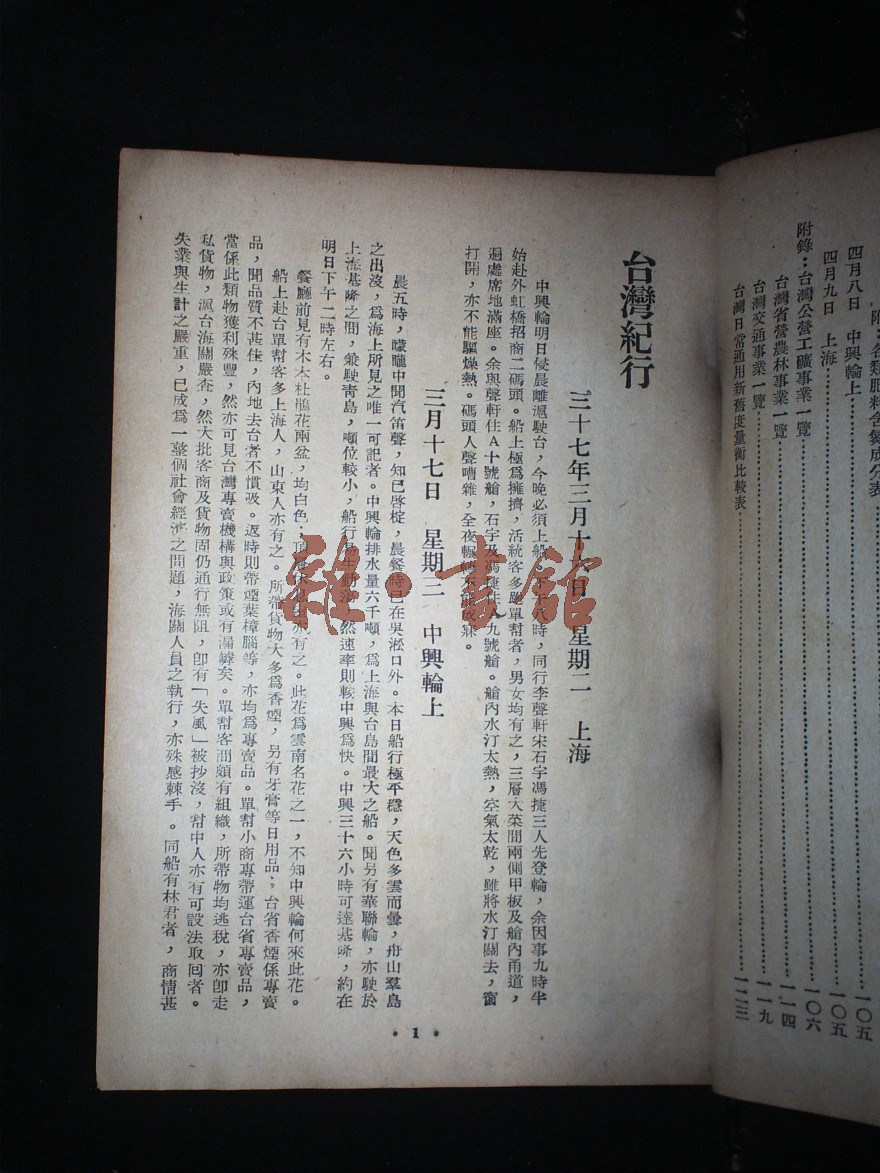 附：各類肥料含氮成分表
四月八日　中興輪上……一〇五
四月九日　上海……一〇五
附錄：台灣公營工礦事業一覽……一〇六
台灣省營農林事業一覽……一一四
台灣交通事業一覽……一一九
台灣日常通用新舊度量衡比較表……一二三
台灣紀行
三十七年三月十六日　星期二　上海
中興輪明日侵晨離滬駛台，今晚必須上船。時，同行李聲軒宋石宇馮捷三人先登輪，余因事九時半
始赴外虹橋招商二碼頭。船上極為擁擠，活統客多跑單幫者，男女均有之，三層大菜間兩側甲板及艙內甬道，
遍處席地滿座。余與聲軒住A十號艙，石宇及馮捷住A九號艙。艙內水汀太熱，空氣太乾，雖將水汀關去，窗
打開，亦不能驅燥熱。碼頭人聲嘈雜，全夜輾轉不能成寐。
三月十七日　星期三　中興輪上
晨五時，矇矓中聞汽笛聲，知已啓椗，晨餐時已在吳淞口外。本日船行極平穩，天色多雲而曇，舟山羣島
之出沒，為海上所見之唯一可記者。中興輪排水量六千噸，為上海與台島間最大之船。聞另有華聯輪，亦駛於
上海基隆之間，兼駛青島，噸位較小，船行易生動蕩，然速率則較中興為快。中興三十六小時可達基隆，約在
明日下午二時左右。
餐廳前見有木本杜鵑花兩盆，均白色；頂層休息室亦有之。此花為雲南名花之一，不知中興輪何來此花。
船上赴台單幫客多上海人，山東人亦有之。所帶貨物大多為香煙，另有牙膏等日用品；台省香煙係專賣
品，聞品質不甚佳，內地去台者不慣吸。返時則帶煙葉樟腦等，亦均為專賣品。單幫小商專帶運台省專賣品，
當係此類物獲利殊豐，然亦可見台灣專賣機構與政策或有漏罅矣。單幫客間頗有組織，所帶物均逃稅，亦卽走
私貨物，滬台海關嚴查，然大批客商及貨物固仍通行無阻，卽有「失風」被抄沒，幫中人亦有可設法取囘者。
失業與生計之嚴重，已成為一整個社會經濟之問題，海關人員之執行，亦殊感棘手。同船有林君者，商情甚
·1·
雜·書館